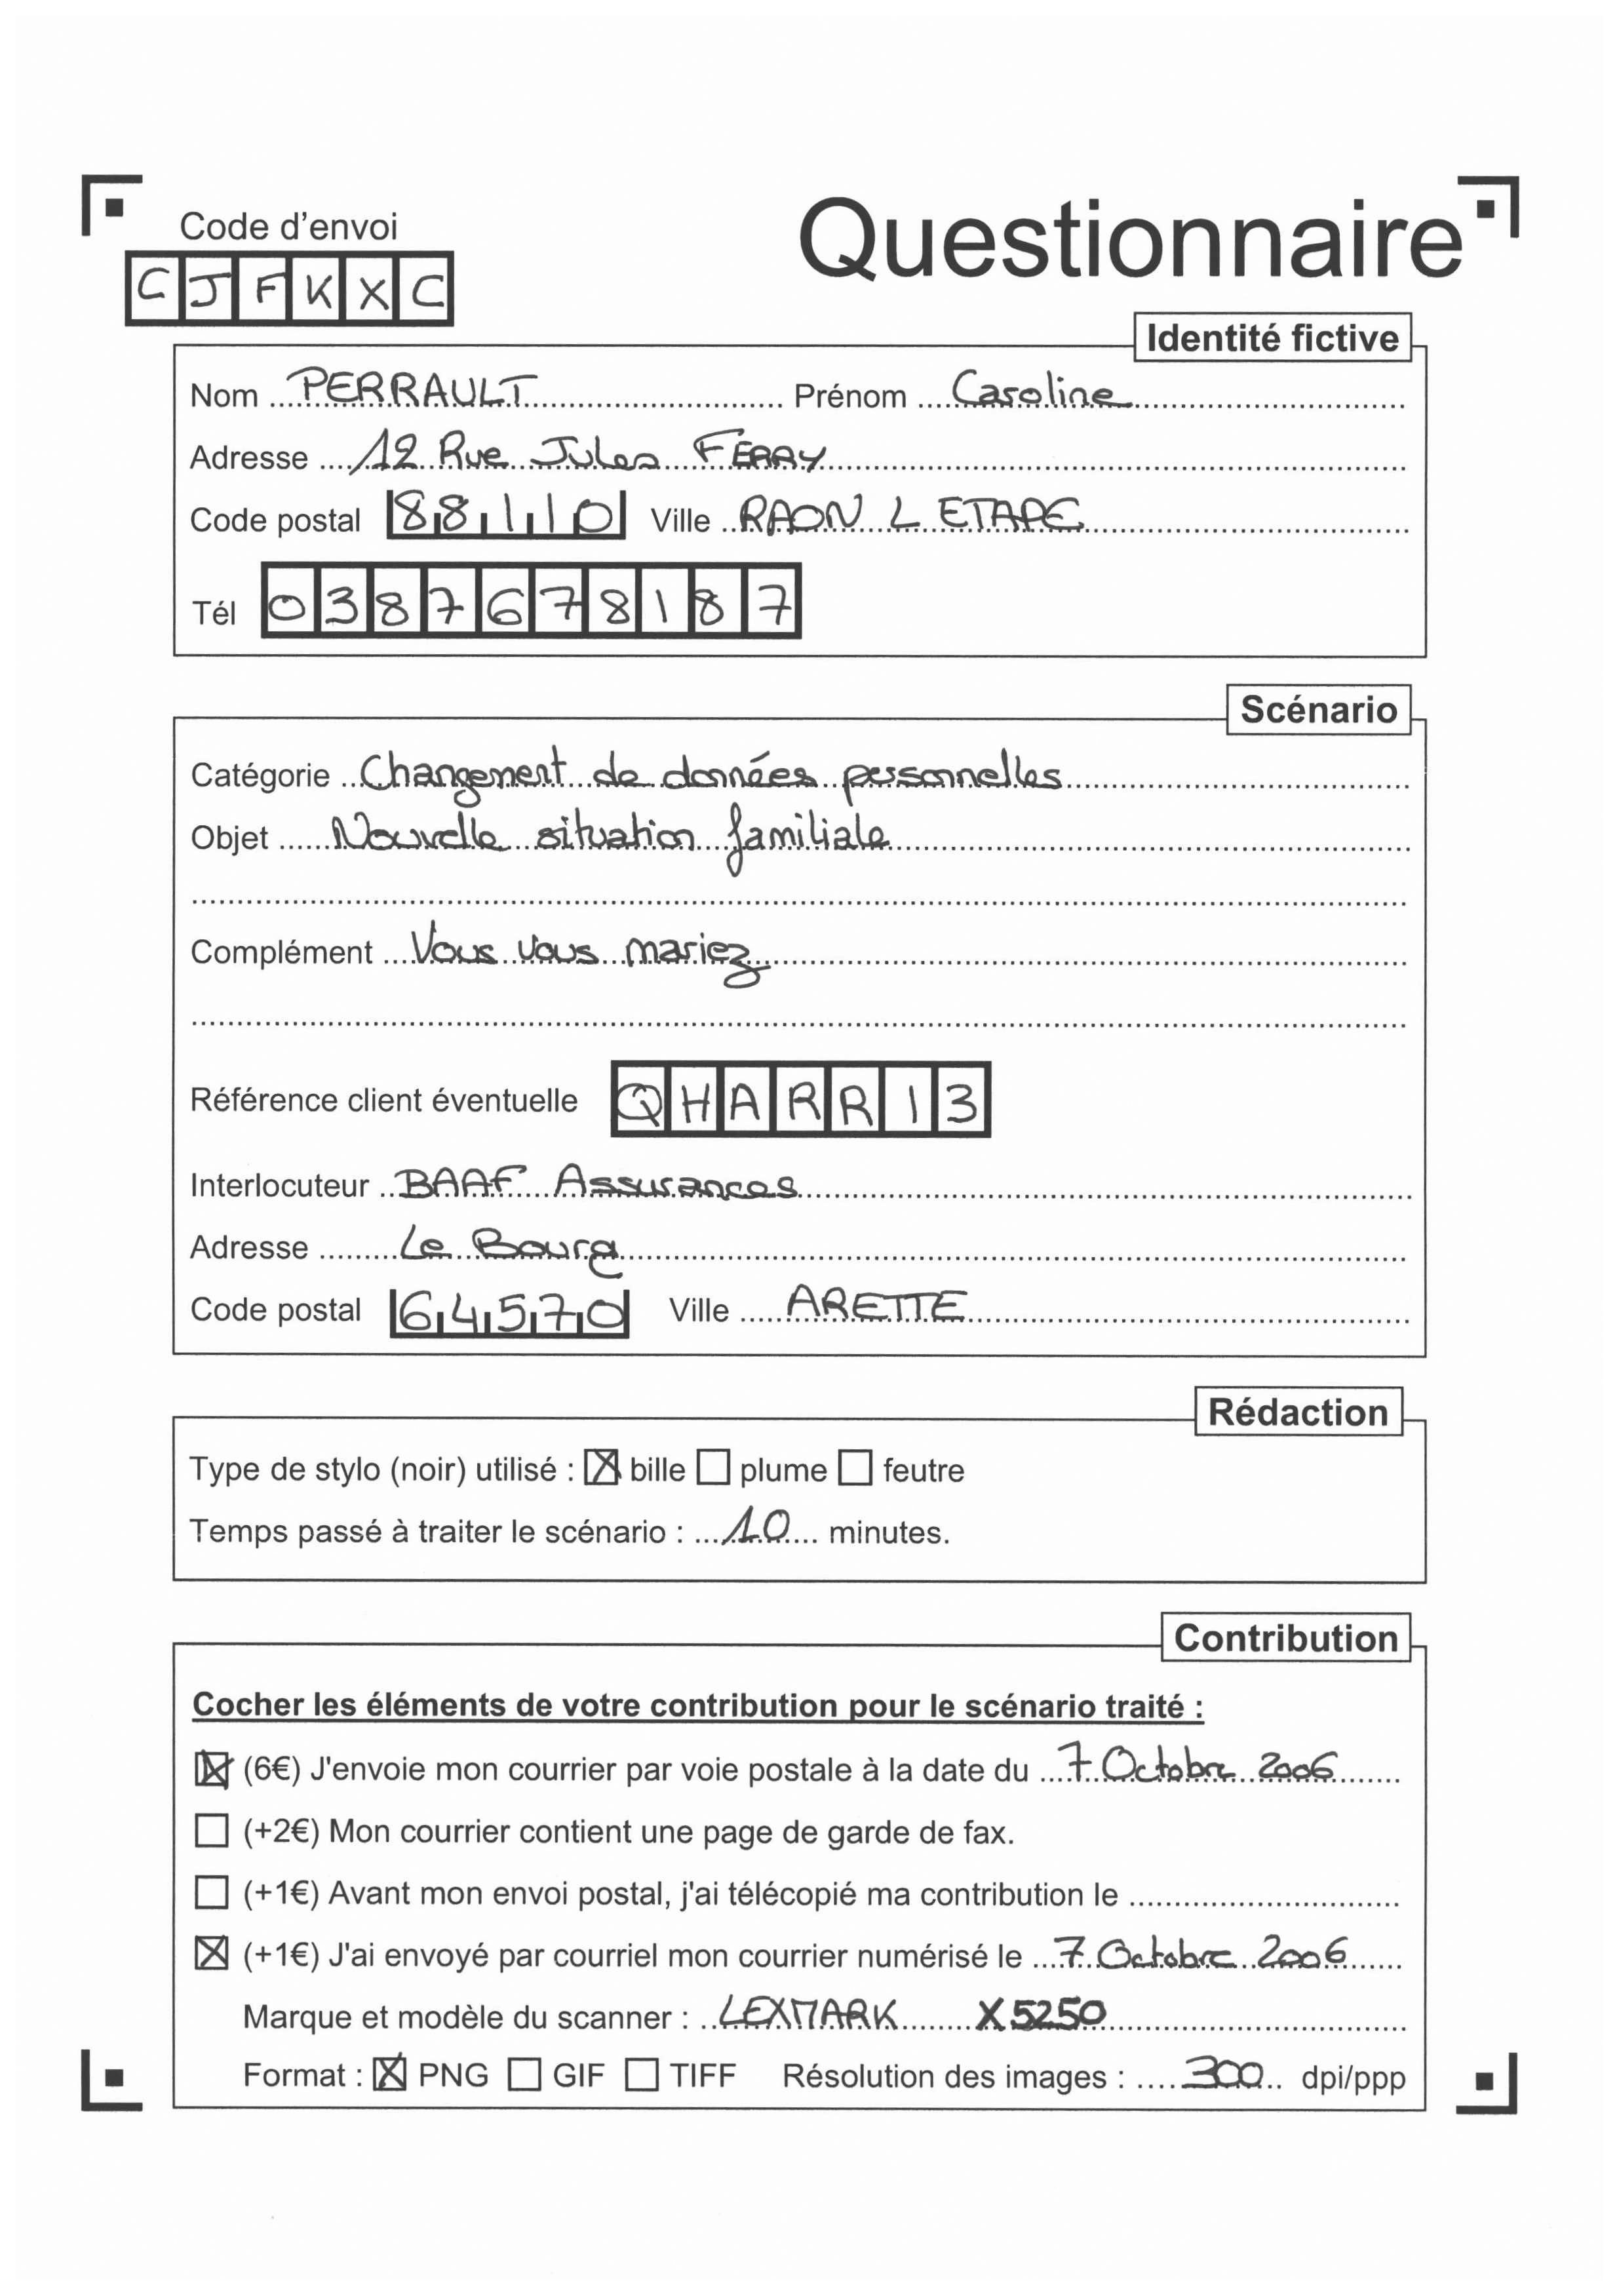 Questionnaire
Code d'envoi
CJFKXC
Identité fictive
Nom PERRAULT Prénom Caroline
Adresse 12 Rue Jules FERRY
Code postal 88110 Ville RAON L ETAPE
Tél 0387678187
Scénario
Catégorie Changement de données personnelles
Objet Nouvelle situation familiale
Complément Vous vous mariez
Référence client éventuelle QHARR13
Interlocuteur BAAF Assurances
Adresse Le Bourg
Code postal 64570 Ville ARETTE
Rédaction
Type de stylo (noir) utilisé : ☒ bille ☐ plume ☐ feutre
Temps passé à traiter le scénario : 10 minutes.
Contribution
Cocher les éléments de votre contribution pour le scénario traité :
☒ (6€) J'envoie mon courrier par voie postale à la date du 7 Octobre 2006
☐ (+2€) Mon courrier contient une page de garde de fax.
☐ (+1€) Avant mon envoi postal, j'ai télécopié ma contribution le
☒ (+1€) J'ai envoyé par courriel mon courrier numérisé le 7 Octobre 2006
Marque et modèle du scanner : LEXMARK X5250
Format : ☒ PNG ☐ GIF ☐ TIFF Résolution des images : 300 dpi/ppp